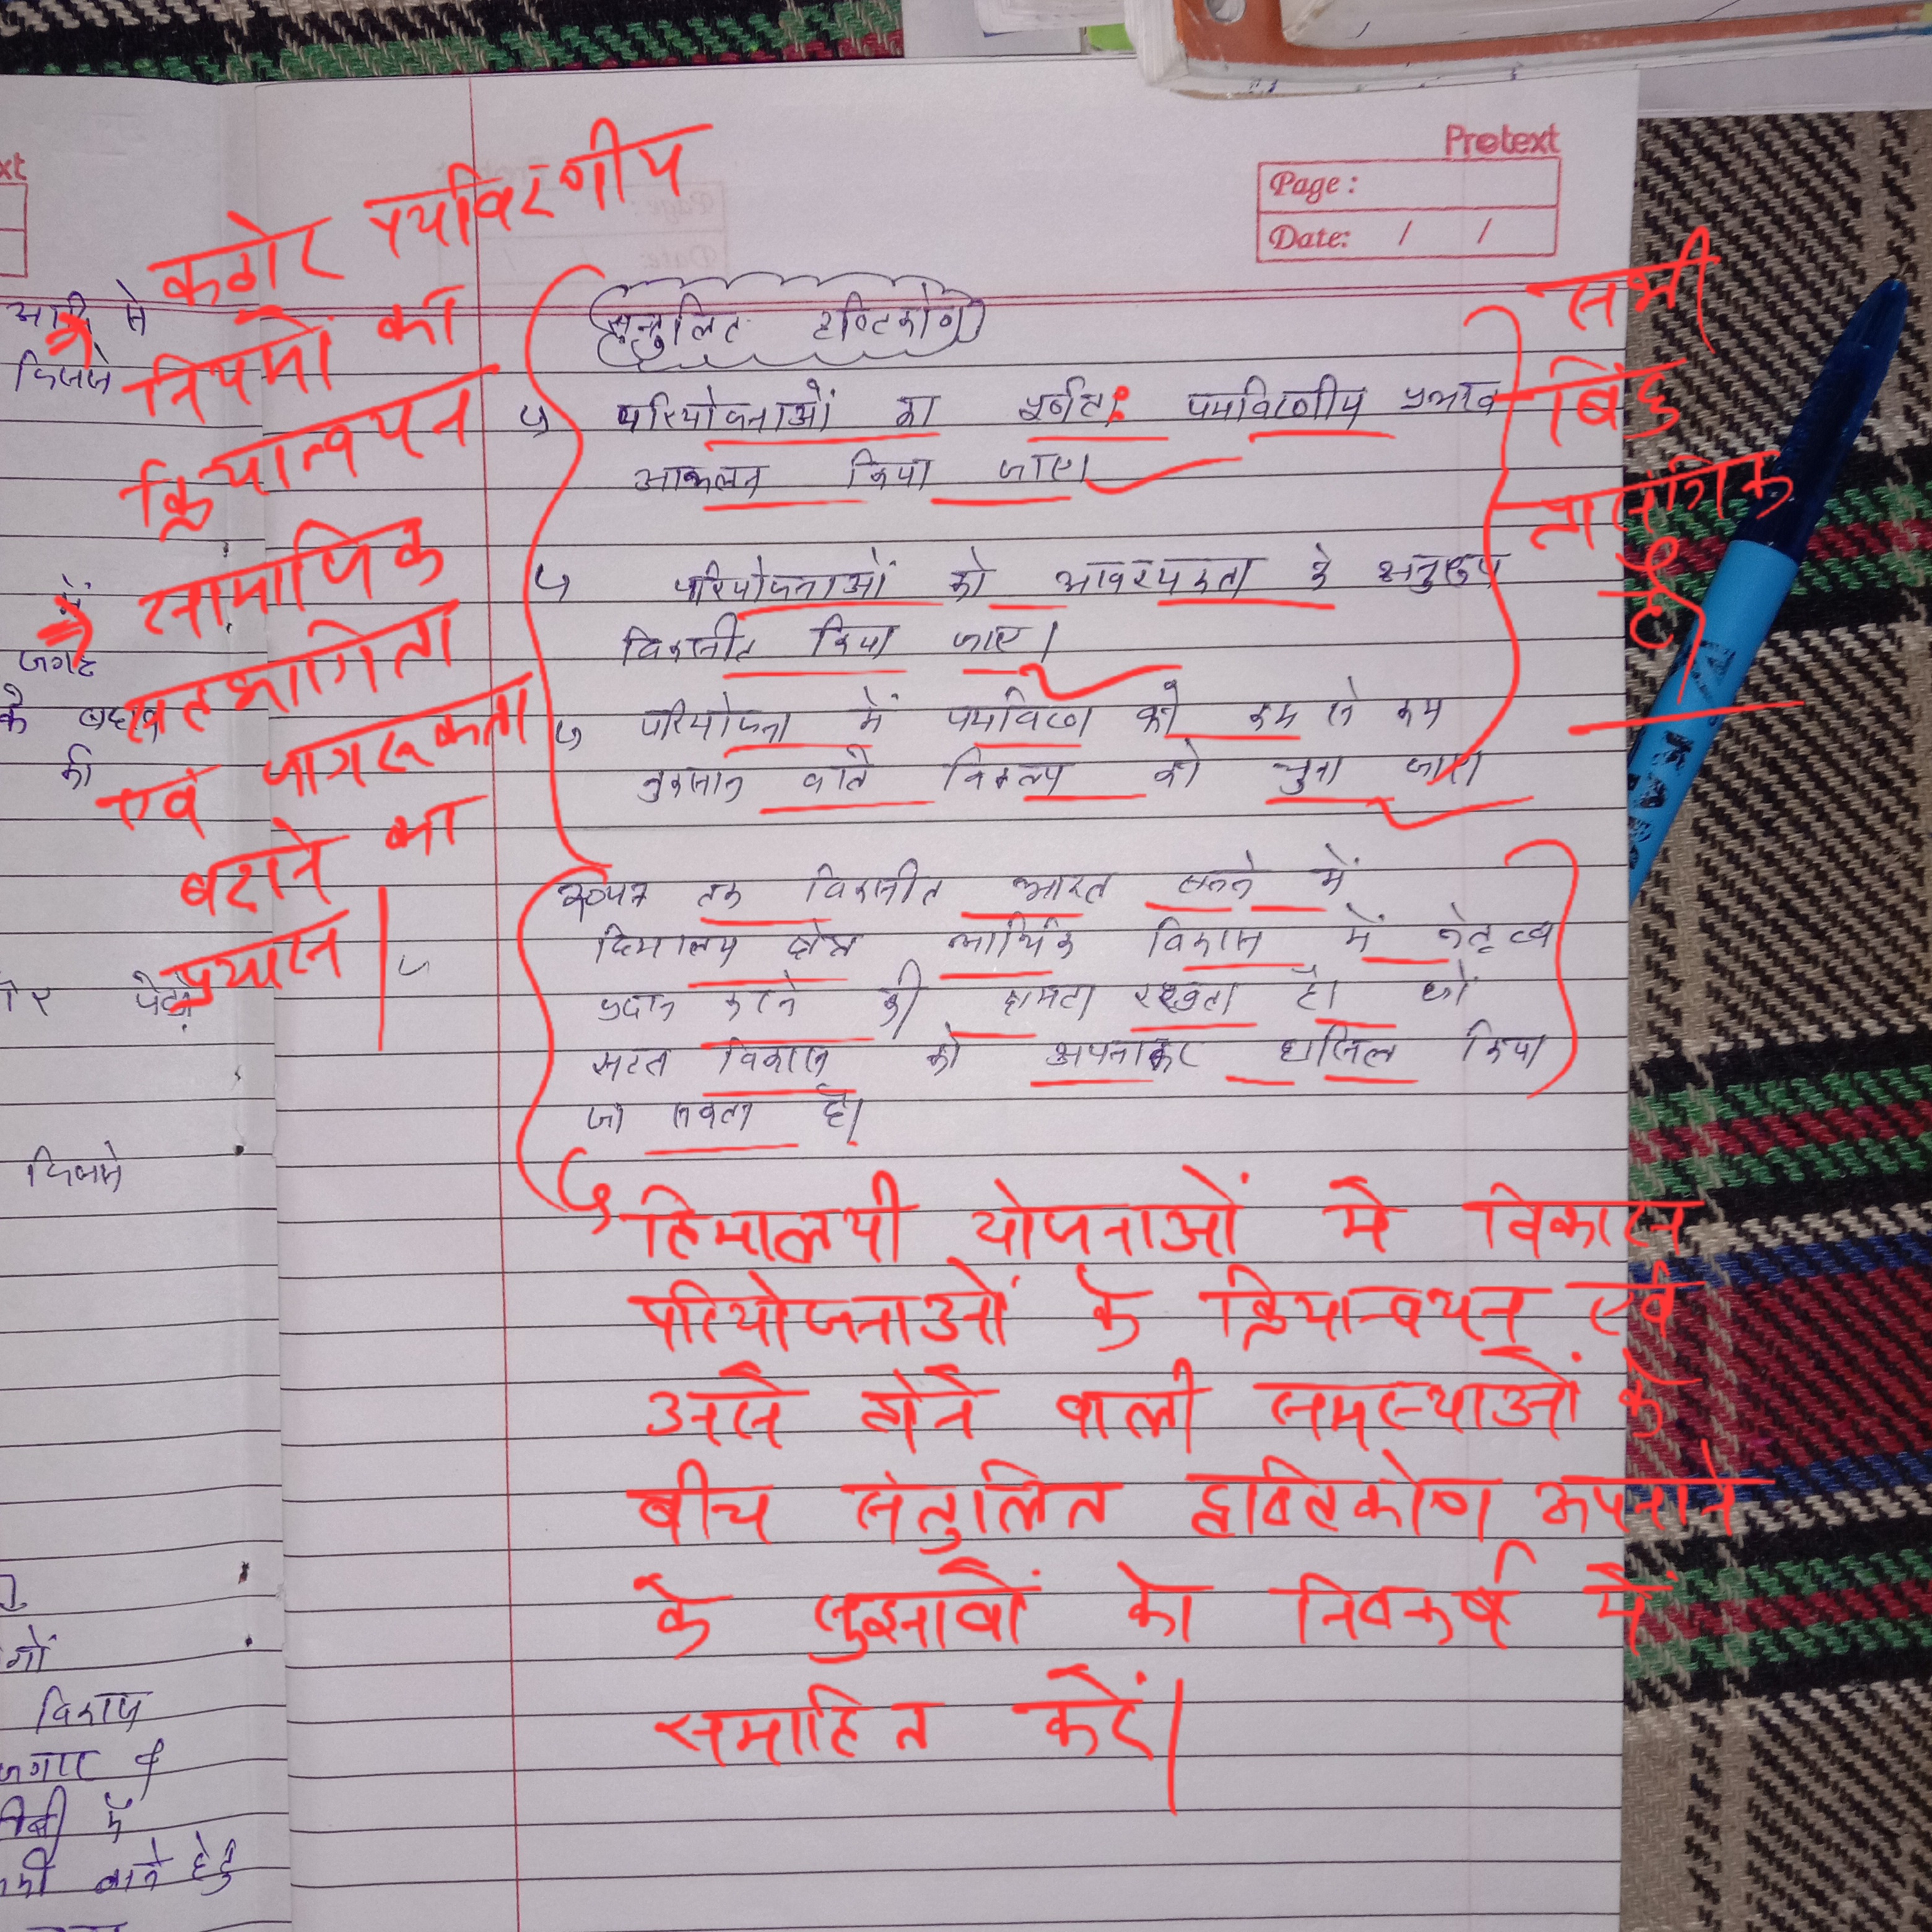 Protext
Page :
Date: / /
कठोर पर्यावरणीय
नियमों का
क्रियान्वयन
सामाजिक
सहभागिता
एवं जागरूकता
बढ़ाने का
प्रयास।
सन्तुलित दृष्टिकोण
परियोजनाओं का पूर्णतः पर्यावरणीय प्रभाव
आकलन किया जाए।
परियोजनाओं को आवश्यकता के अनुरूप
विकसित किया जाए।
परियोजना में पर्यावरण को कम से कम
नुकसान वाले विकल्प को चुना जाए।
सभी
बिंदु
प्रासंगिक
है।
तक विकसित भारत बनने में
हिमालय क्षेत्र आर्थिक विकास में नेतृत्व
प्रदान करने की क्षमता रखता है। जो
सतत विकास को अपनाकर हासिल किया
जा सकता है।
हिमालयी योजनाओं मे विकास
परियोजनाओं के क्रियान्वयन एवं
उनसे होने वाली समस्याओं के
बीच संतुलित दृष्टिकोण अपनाने
के सुझावों को निष्कर्ष में
समाहित करें।
से
जगह
के
की
जिससे
विकास
में
हेतु